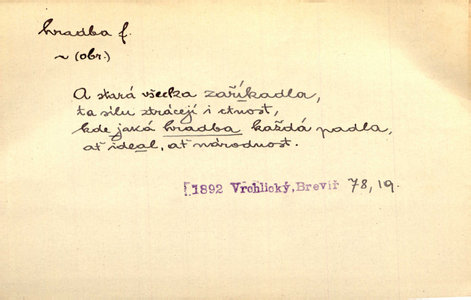 hradba f.
~ (obr.)
A stará všecka zaříkadla,
ta sílu ztrácejí i ctnost,
kde jaká hradba každá padla,
ať ideal, ať národnost.
[1892 Vrchlický, Breviř 78, 19.